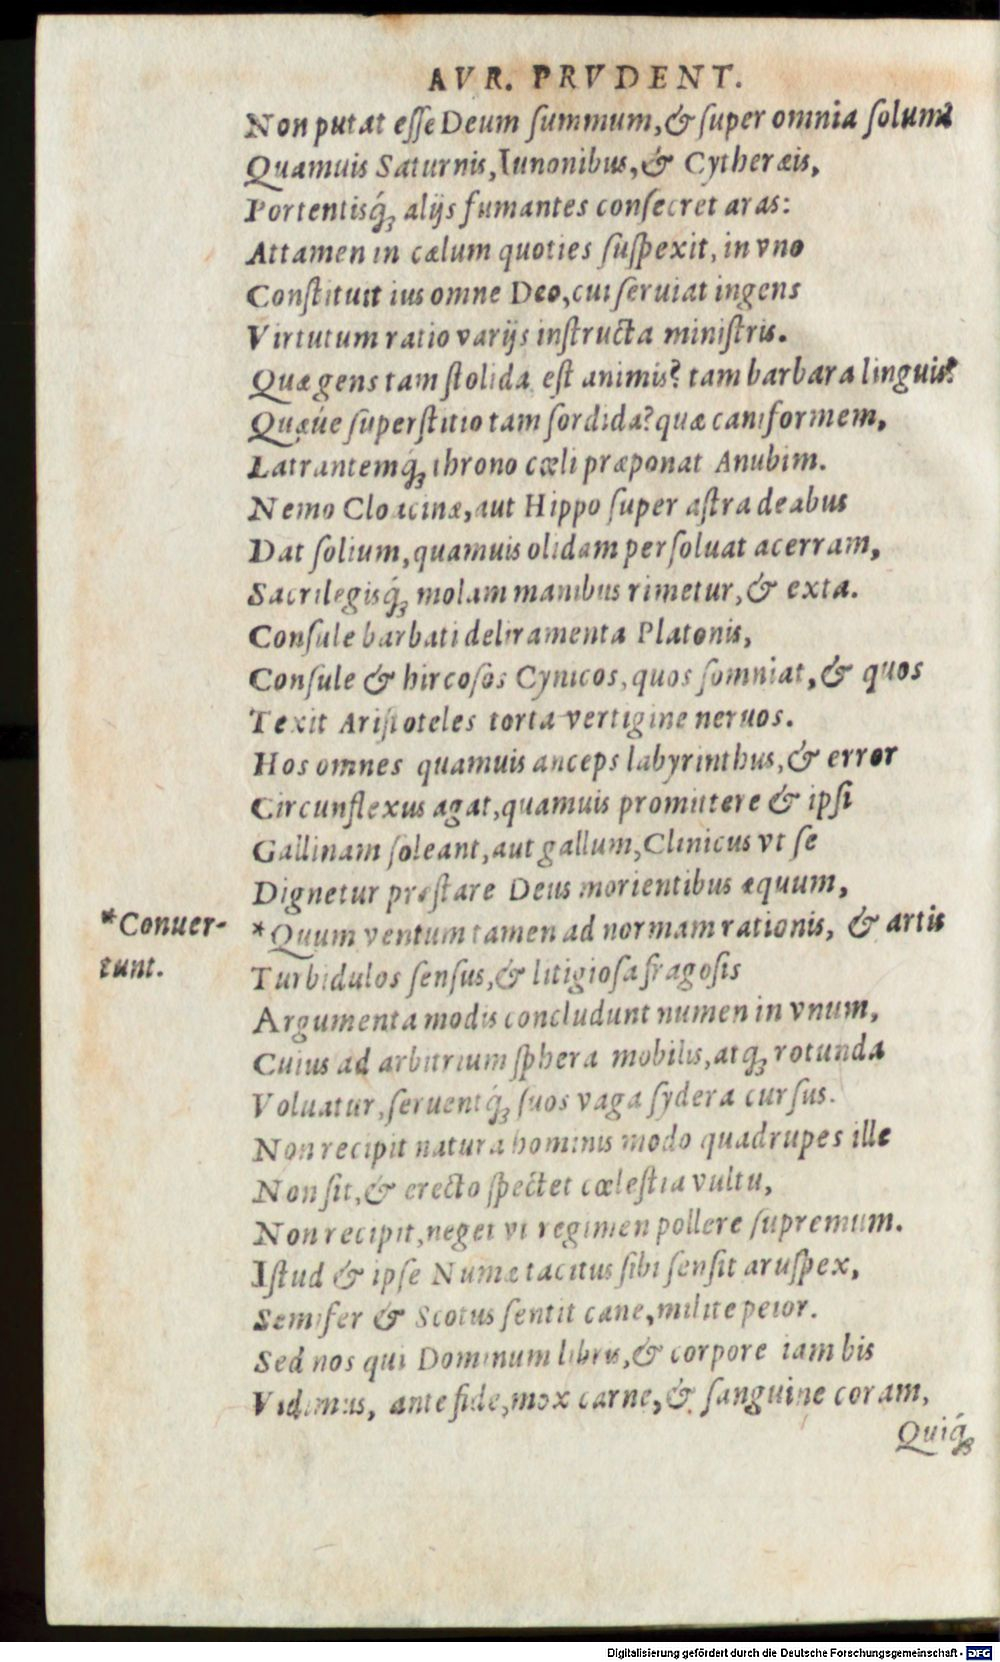 AVR. PRVDENT.
Non putat esse Deum summum, & super omnia solum?
Quamuis Saturnis, Iunonibus, & Cytheræis,
Portentisq́; alijs fumantes consecret aras:
Attamen in cælum quoties suspexit, in vno
Constituit ius omne Deo, cui seruiat ingens
Virtutum ratio varijs instructa ministris.
Quæ gens tam stolida est animis? tam barbara linguis?
Quæúe superstitio tam sordida? quæ caniformem,
Latrantemq́; throno cœli præponat Anubim.
Nemo Cloacinæ, aut Hippo super astra deabus
Dat solium, quamuis olidam persoluat acerram,
Sacrilegisq́; molam manibus rimetur, & exta.
Consule barbati deliramenta Platonis,
Consule & hircosos Cynicos, quos somniat, & quos
Texit Aristoteles torta vertigine neruos.
Hos omnes quamuis anceps labyrinthus, & error
Circunflexus agat, quamuis promittere & ipsi
Gallinam soleant, aut gallum, Clinicus vt se
Dignetur præstare Deus morientibus æquum,
*Conuer-
tunt.
*Quum ventum tamen ad normam rationis, & artis
Turbidulos sensus, & litigiosa fragosis
Argumenta modis concludunt numen in vnum,
Cuius ad arbitrium sphera mobilis, atq; rotunda
Voluatur, seruentq́; suos vaga sydera cursus.
Non recipit natura hominis modo quadrupes ille
Non sit, & erecto spectet cœlestia vultu,
Non recipit, neget vt regimen pollere supremum.
Istud & ipse Numæ tacitus sibi sensit aruspex,
Semifer & Scotus sentit cane, milite peior.
Sed nos qui Dominum libris, & corpore iam bis
Vidimus, ante fide, mox carne, & sanguine coram,
Quiq́;
Digitalisierung gefördert durch die Deutsche Forschungsgemeinschaft - DFG